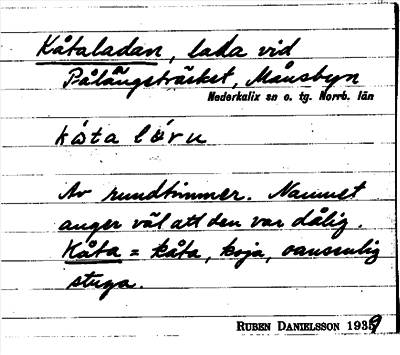 Kåtaladan, lada vid
Pålängsträsket, Månsbyn
Nederkalix sn o. tg. Norrb. län
kå̀ta lö́ru
Av rundtimmer. Namnet
anger väl att den var dålig.
Kåta = kåta, koja, oansenlig
stuga.
RUBEN DANIELSSON 1939